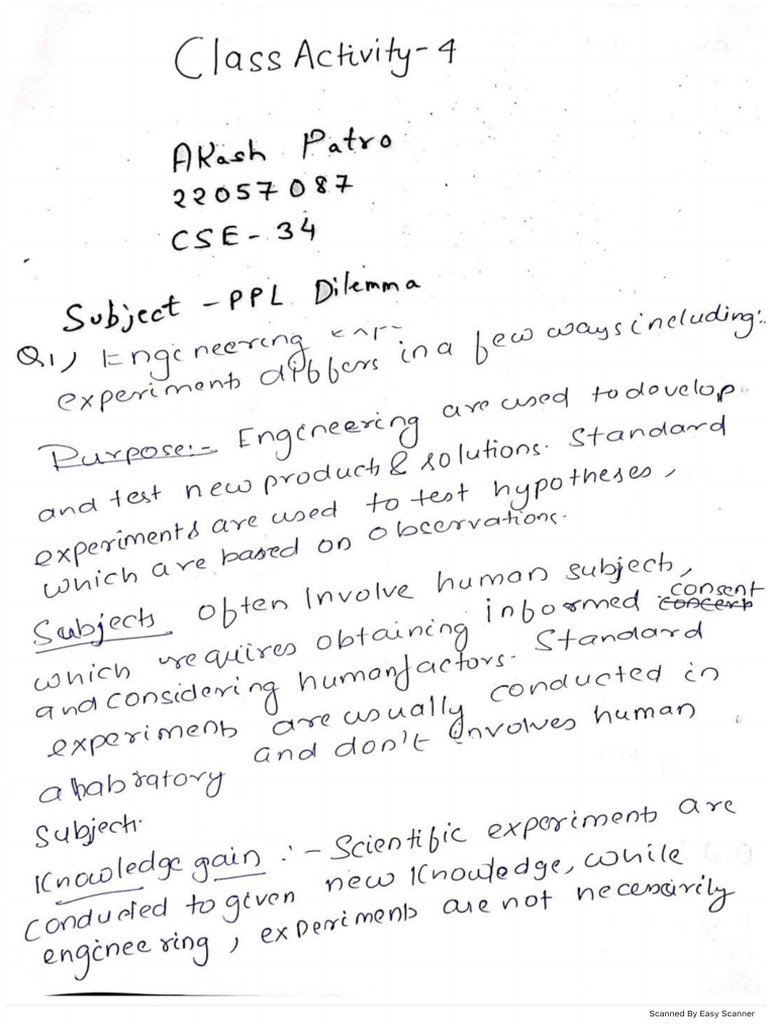 Class Activity-4
Akash Patro
22057087
CSE-34
Subject - PPL Dilemma
Q1) Engineering
experiments differs in a few ways including:-
Purpose:- Engineering are used to develop
and test new products & solutions. Standard
experiments are used to test hypotheses,
which are based on observations.
Subjects often involve human subjects,
which requires obtaining informed consent
and considering human factors. Standard
experiments are usually conducted in
a labratory and don't involves human
subjects.
Knowledge gain :- Scientific experiments are
conducted to given new knowledge, while
engineering, experiments are not necessarily
Scanned By Easy Scanner